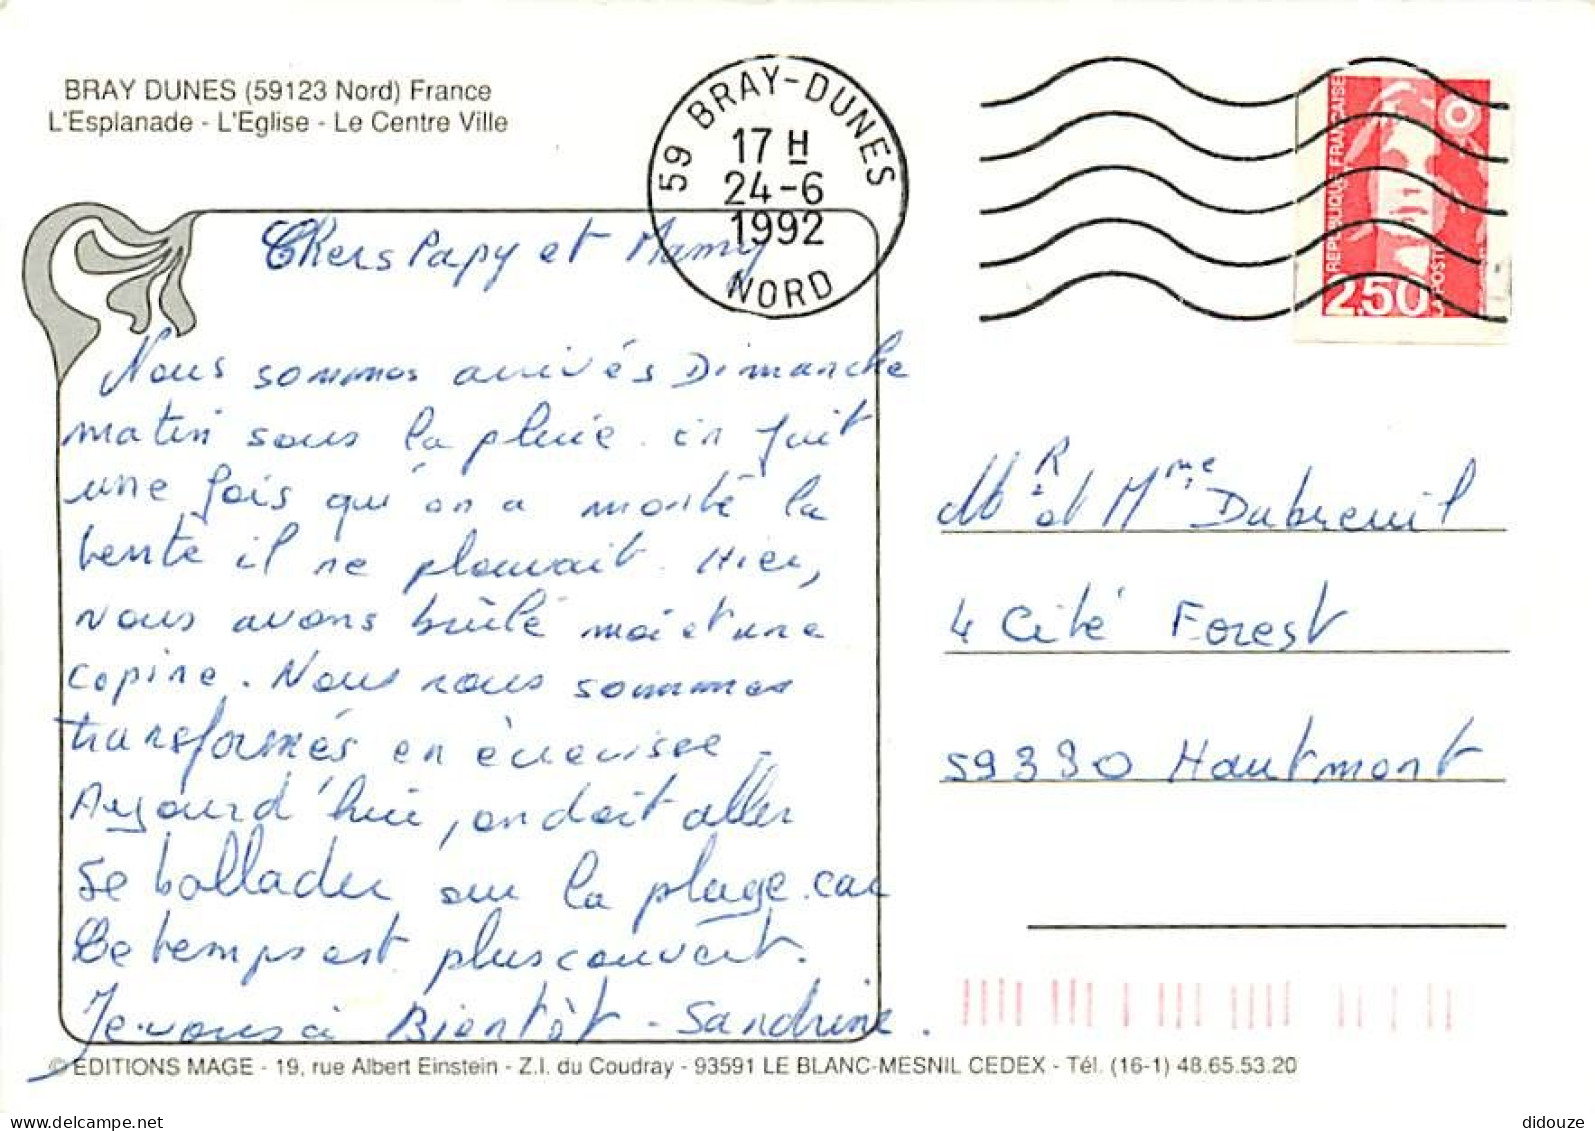 BRAY DUNES (59123 Nord) France
L'Esplanade - L'Eglise - Le Centre Ville
59 BRAY-DUNES
17 H
24-6
1992
NORD
REPUBLIQUE FRANÇAISE
2,50
POSTE
Chers Papy et Mamy
Nous sommes arrivés Dimanche
matin sous la pluie. en fait
une fois qu'on a monté la
tente il ne plouvait. Hier,
nous avons brûlé moi et une
copine. Nous nous sommes
transformés en écrevisse.
Aujourd'hui, on doit aller
se ballader sur la plage. car
Le temps est plus couvert.
Je vous à Bientôt - Sandrine.
MR et Mme Dubreuil
4 Cité Forest
59330 Hautmont
© EDITIONS MAGE - 19, rue Albert Einstein - Z.I. du Coudray - 93591 LE BLANC-MESNIL CEDEX - Tél. (16-1) 48.65.53.20
delcampe.net
didouze